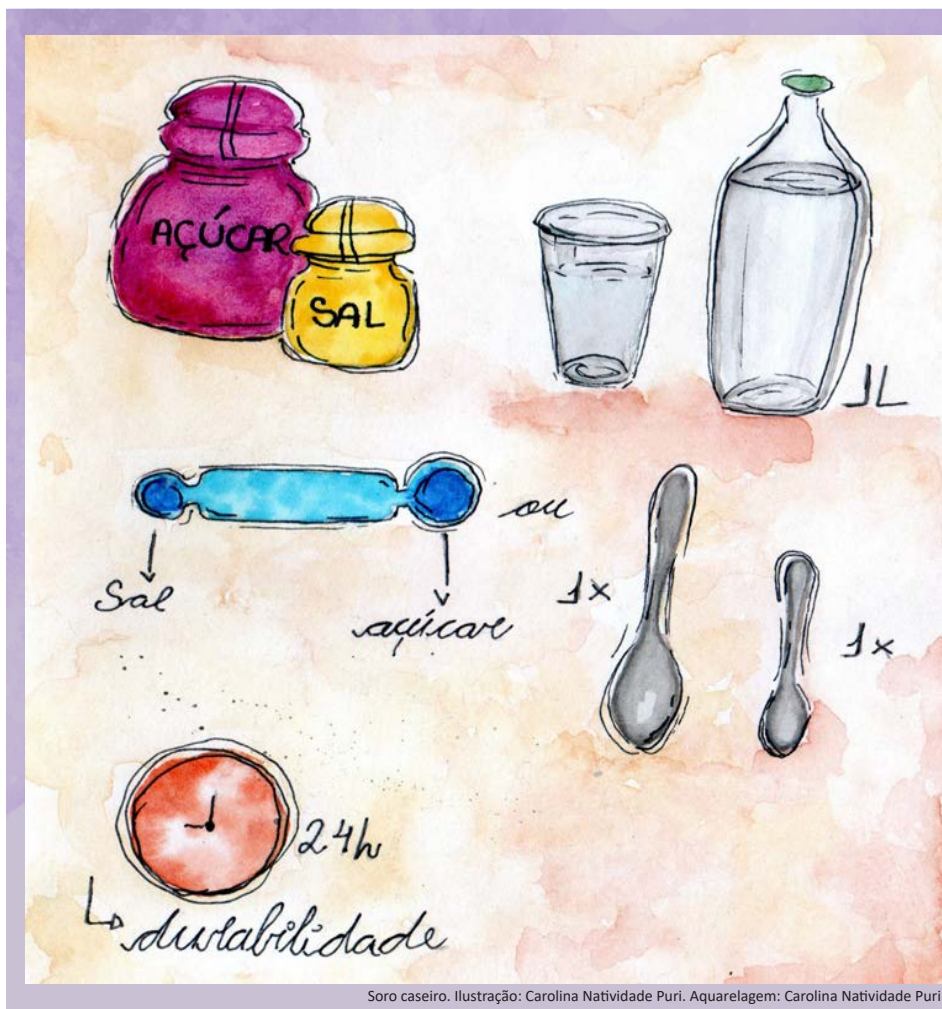 AÇÚCAR
SAL
1L
Sal
açúcar
ou
1x
1x
24h
durabilidade
Soro caseiro. Ilustração: Carolina Natividade Puri. Aquarelagem: Carolina Natividade Puri